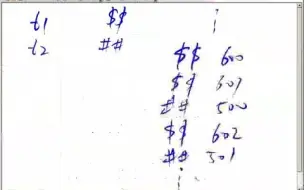 t1 $$
t2 ##
$$ 600
$$ 601
## 500
$$ 602
## 501